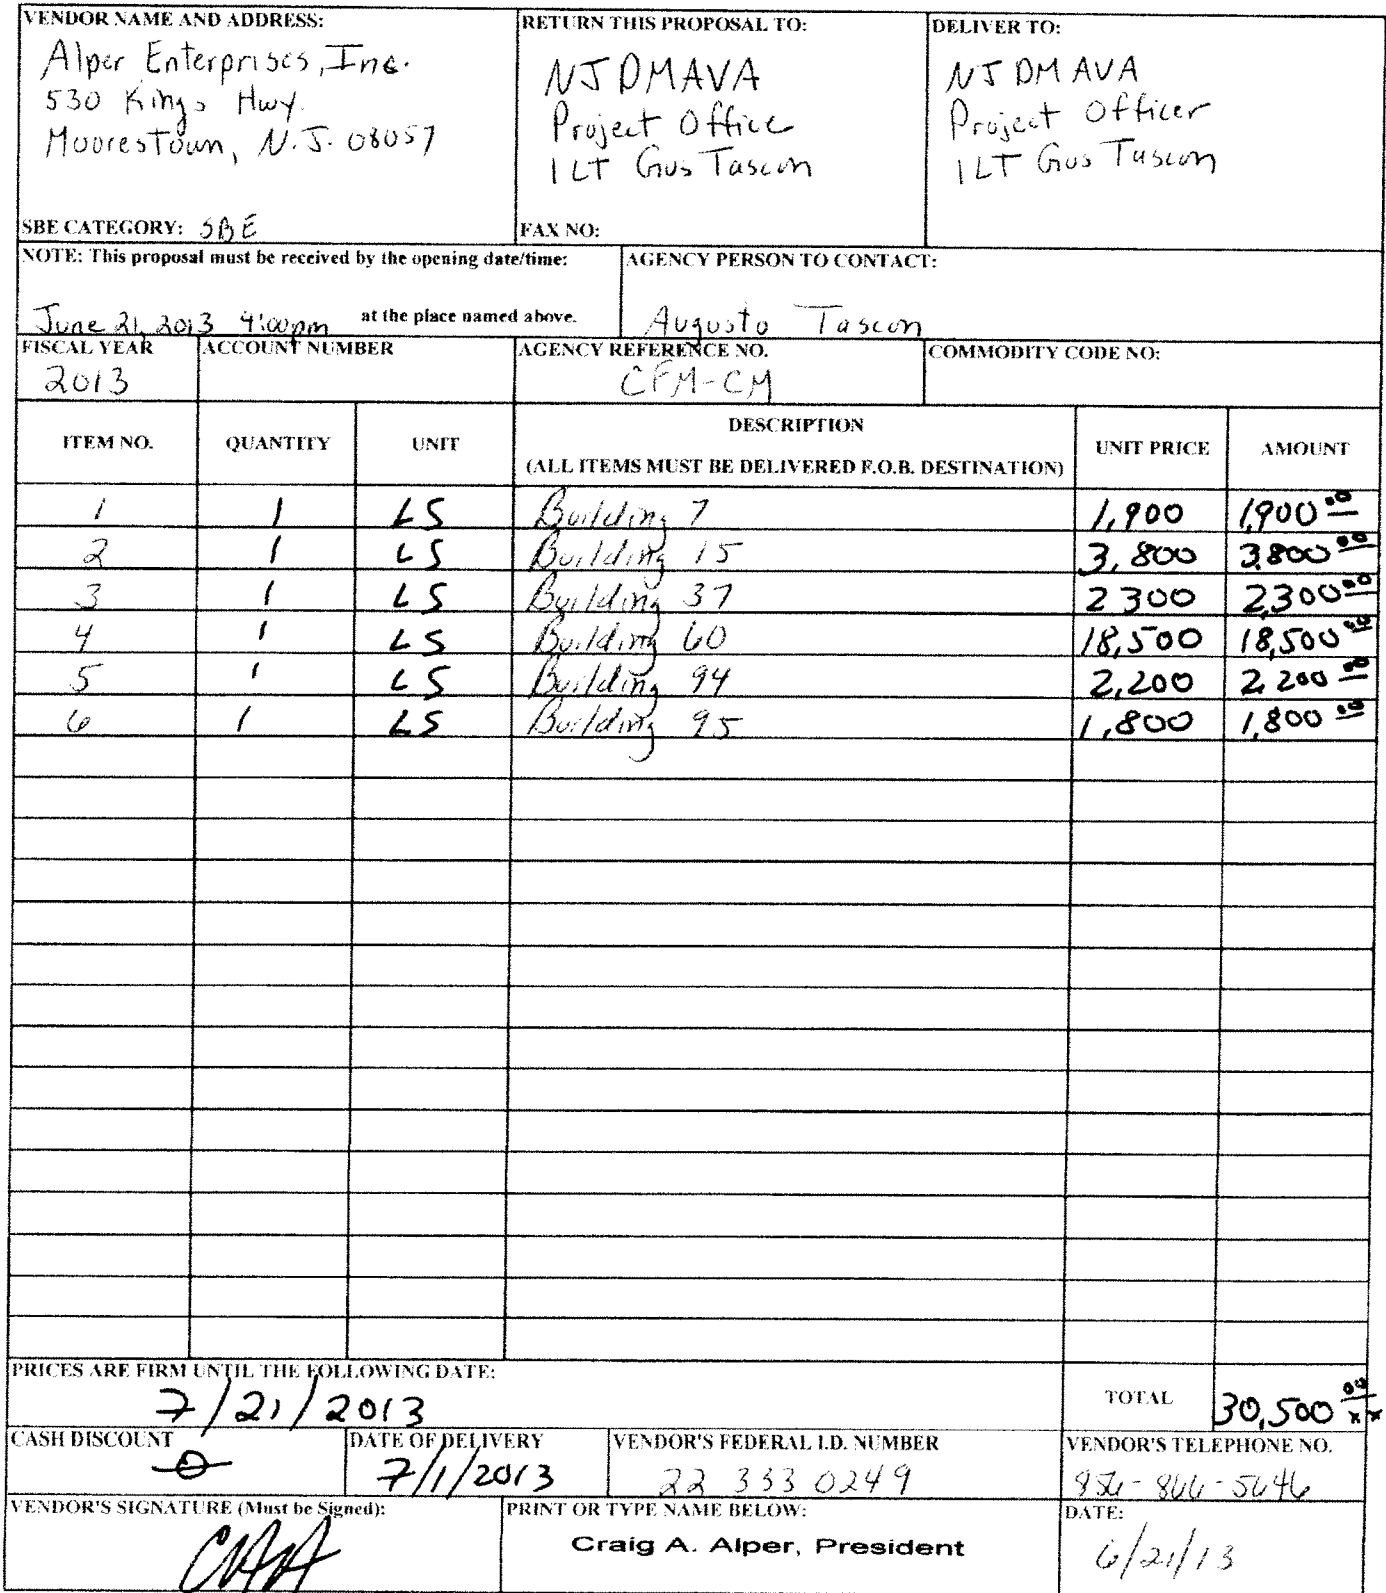 VENDOR NAME AND ADDRESS:
Alper Enterprises, Inc.
530 Kings Hwy.
Moorestown, N.J. 08057
SBE CATEGORY: SBE
RETURN THIS PROPOSAL TO:
NJDMAVA
Project Office
1LT Gus Tascon
FAX NO:
DELIVER TO:
NJ DMAVA
Project Officer
1LT Gus Tascon
NOTE: This proposal must be received by the opening date/time:
June 21, 2013 4:00pm at the place named above.
AGENCY PERSON TO CONTACT:
Augusto Tascon
FISCAL YEAR
2013
ACCOUNT NUMBER
AGENCY REFERENCE NO.
CFM-CM
COMMODITY CODE NO:
ITEM NO. QUANTITY UNIT DESCRIPTION (ALL ITEMS MUST BE DELIVERED F.O.B. DESTINATION) UNIT PRICE AMOUNT
1 1 LS Building 7 1,900 1,900.00
2 1 LS Building 15 3,800 3,800.00
3 1 LS Building 37 2300 2,300.00
4 1 LS Building 60 18,500 18,500.00
5 1 LS Building 94 2,200 2,200.00
6 1 LS Building 95 1,800 1,800.00
PRICES ARE FIRM UNTIL THE FOLLOWING DATE:
7/21/2013
TOTAL 30,500 00/xx
CASH DISCOUNT
0
DATE OF DELIVERY
7/1/2013
VENDOR'S FEDERAL I.D. NUMBER
22 333 0249
VENDOR'S TELEPHONE NO.
856-866-5646
VENDOR'S SIGNATURE (Must be Signed):
PRINT OR TYPE NAME BELOW:
Craig A. Alper, President
DATE:
6/21/13